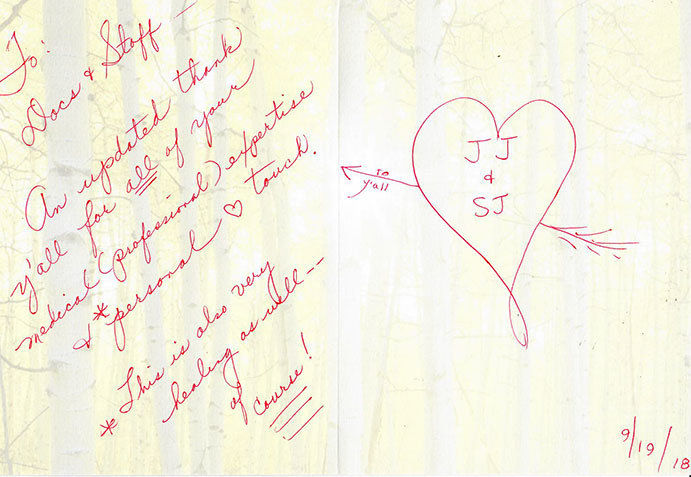 To:
Docs & Staff —
An updated thank
y'all for all of your
medical (professional) expertise
& *personal ♡ touch.
* This is also very
healing as well--
of course!
J J
&
SJ
to
y'all
9/19/18